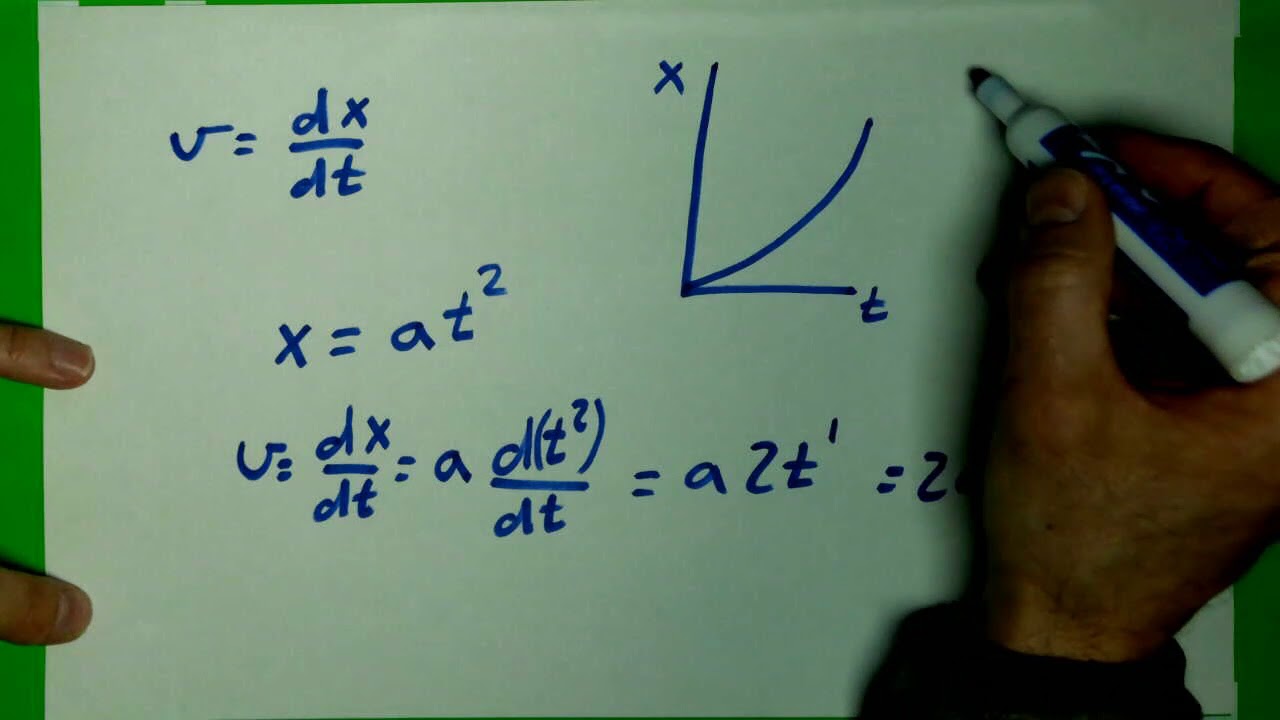 v = dx/dt
x
t
x = at²
v = dx/dt = a d(t²)/dt = a2t¹ = 2